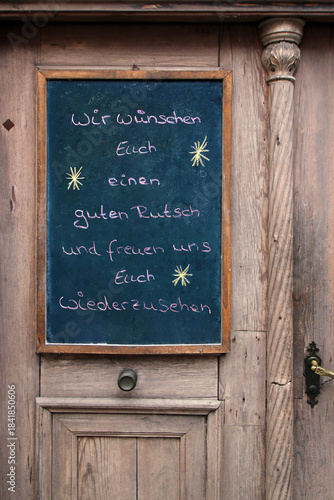 Wir wünschen
Euch
einen
guten Rutsch
und freuen uns
Euch
wiederzusehen
Adobe Stock | #1841850606